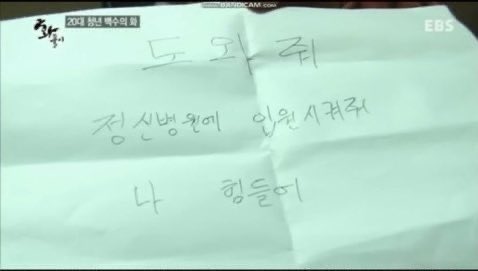 화풀이
20대 청년 백수의 화
www.BANDICAM.com
EBS
도와줘
정신병원에 입원시켜줘
나 힘들어